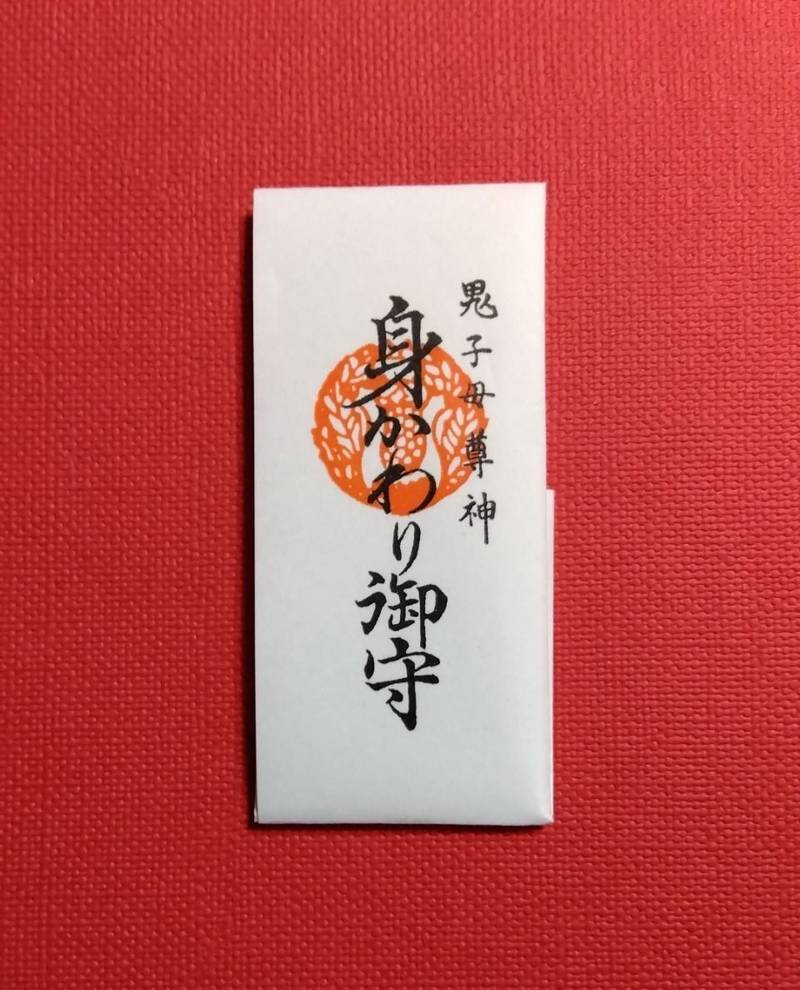 鬼子母尊神
身かわり御守